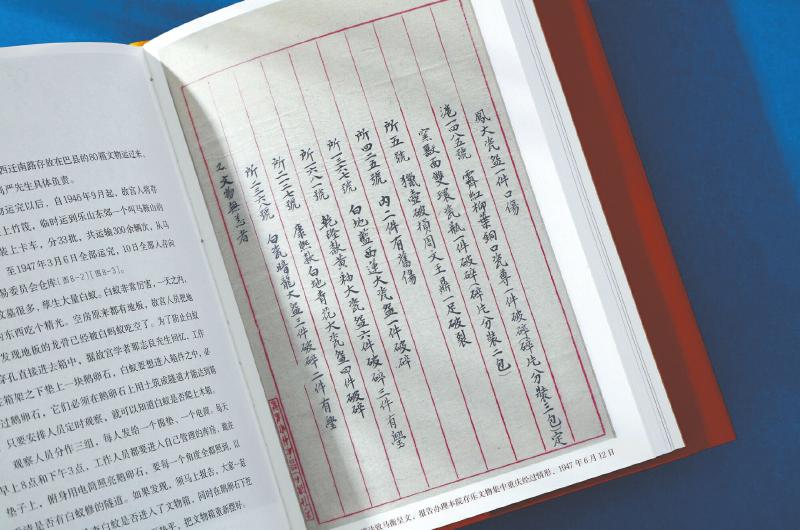 西迁南路存放在巴县的80箱文物运过来,
马严先生具体负责。
物运完以后,自1946年9月起,故宫人将存
上竹筏,临时运到乐山东郊一个叫马鞍山的
装上卡车,分33批,共运输300余辆次,从马
至1947年3月6日全部运完,10日全部入存向
易委员会仓库[西8-2][西8-3]。
坟墓很多,孳生大量白蚁。白蚁非常厉害,一夫之间,
的东西吃个精光。空房原来都有地板,故宫人员把地
发现地板的龙骨已经被白蚂蚁吃空了。为了防止白蚁
穿孔直接进去箱中,据故宫学者那志良先生回忆,工作
在箱架之下垫上一块鹅卵石,白蚁要想进入箱件之中,必
过鹅卵石,它们必须在鹅卵石上用土筑成隧道才能达到箱
只要安排人员定时观察,就可以知道白蚁是否爬上木箱。
观察人员分作三组,每人发给一个棉垫、一个电筒,每天
早上8点和下午3点,工作人员都要进入自己管理的库房,跪在
垫子上,俯身用电筒照亮鹅卵石,要每一个角度全都照到,以
是否有白蚁修的隧道。如果发现,须马上报告,大家一起
白蚁是否进入了文物箱,同时在鹅卵石下铲
把文物箱重新整好。
鳳大瓷盆一件口傷
滬一四八五號 霽紅柳葉銅口瓷尊一件破碎碎片分裝三包定
窯獸面雙環瓷瓶一件破碎(碎片分裝二包)
所五號 獵壺破損周文王鼎一足破裂
所四二五號 內二件有舊傷
所一三六七號 白地藍西蓮大瓷盆一件破碎
所一六八一號 乾隆款黃釉大瓷盆六件破碎三件有璺
所二二二七號 康熙款白地青花大瓷盆四件破碎
所二三六八號 白瓷暗龍大盆三件破碎二件有璺
乙文物無恙者
致马衡呈文,报告办理本院存乐文物集中重庆经过情形,1947年6月12日